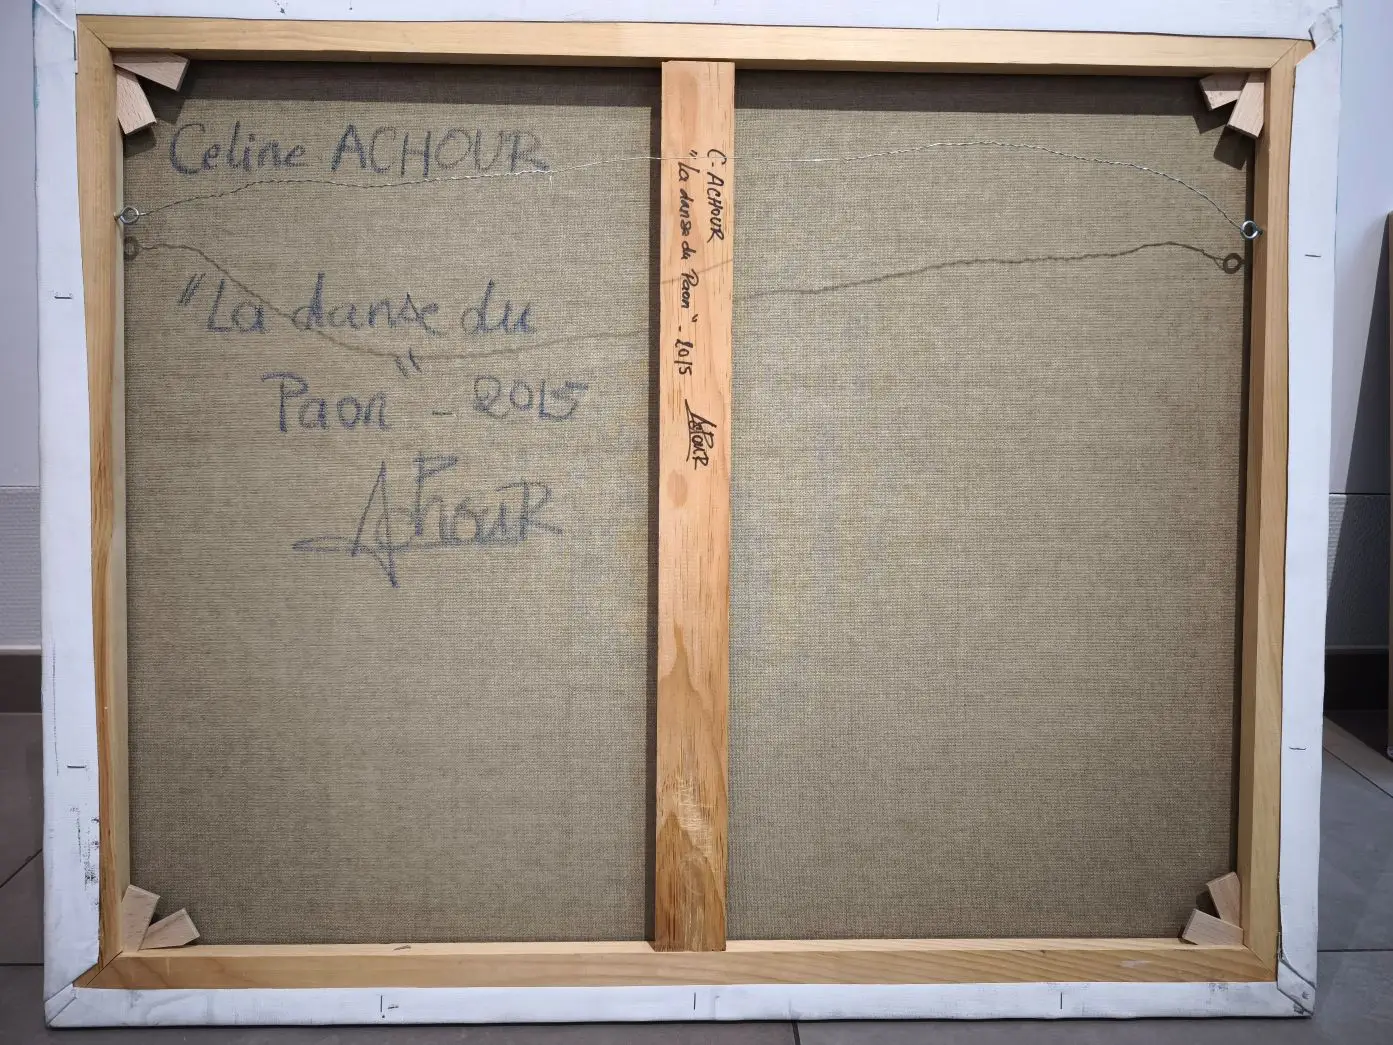 Celine ACHOUR
"La danse du
Paon" - 2015
AchouR
C-ACHOUR
"La danse du Paon" - 2015 AchouR